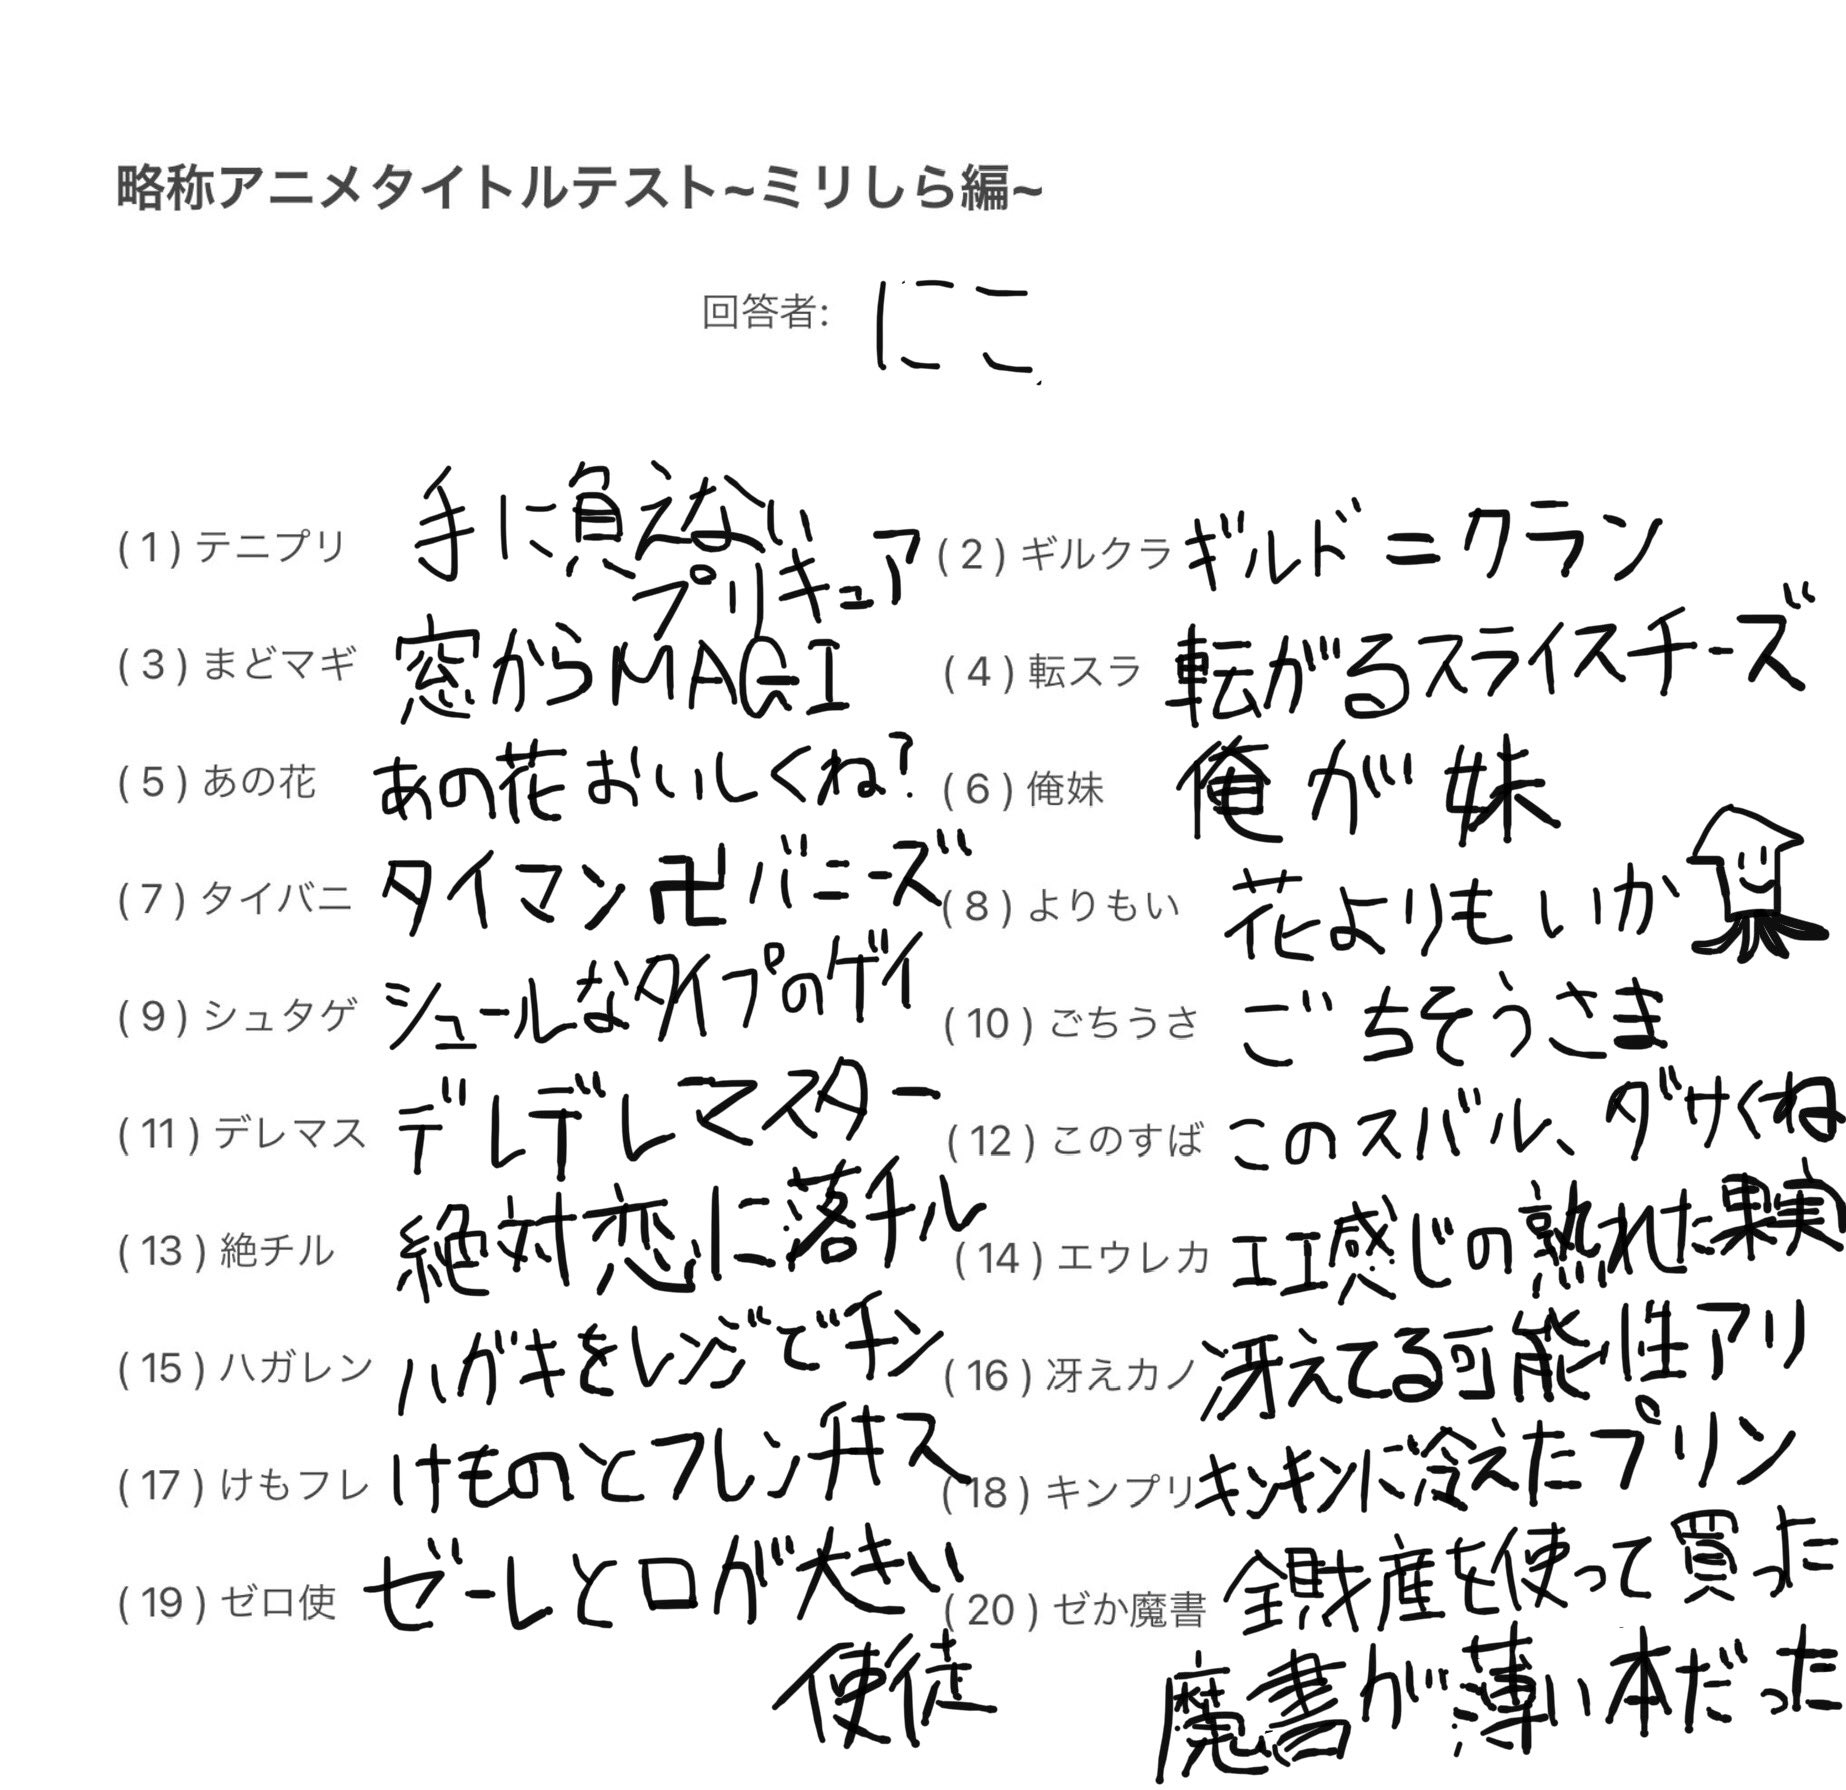 略称アニメタイトルテスト~ミリしら編~
回答者: にこ
(1) テニプリ 手に負えない
プリキュア
(2) ギルクラ ギルド=クラン
(3) まどマギ 窓からMAGI
(4) 転スラ 転がるスライスチーズ
(5) あの花 あの花おいしくね?
(6) 俺妹 俺が妹
(7) タイバニ タイマン卍バニーズ
(8) よりもい 花よりもいか
(9) シュタゲ シュールなタイプのゲイ
(10) ごちうさ ごちそうさま
(11) デレマス デレデレマスター
(12) このすば このスバル、ダサくね
(13) 絶チル 絶対恋に落チル
(14) エウレカ エエ感じの熟れた果実
(15) ハガレン ハガキをレンジでチン
(16) 冴えカノ 冴えてる可能性アリ
(17) けもフレ けものとフレンチキス
(18) キンプリ キンキンに冷えたプリン
(19) ゼロ使 ゼーレと口が大きい
使徒
(20) ゼか魔書 全財産を使って買った
魔書が薄い本だった